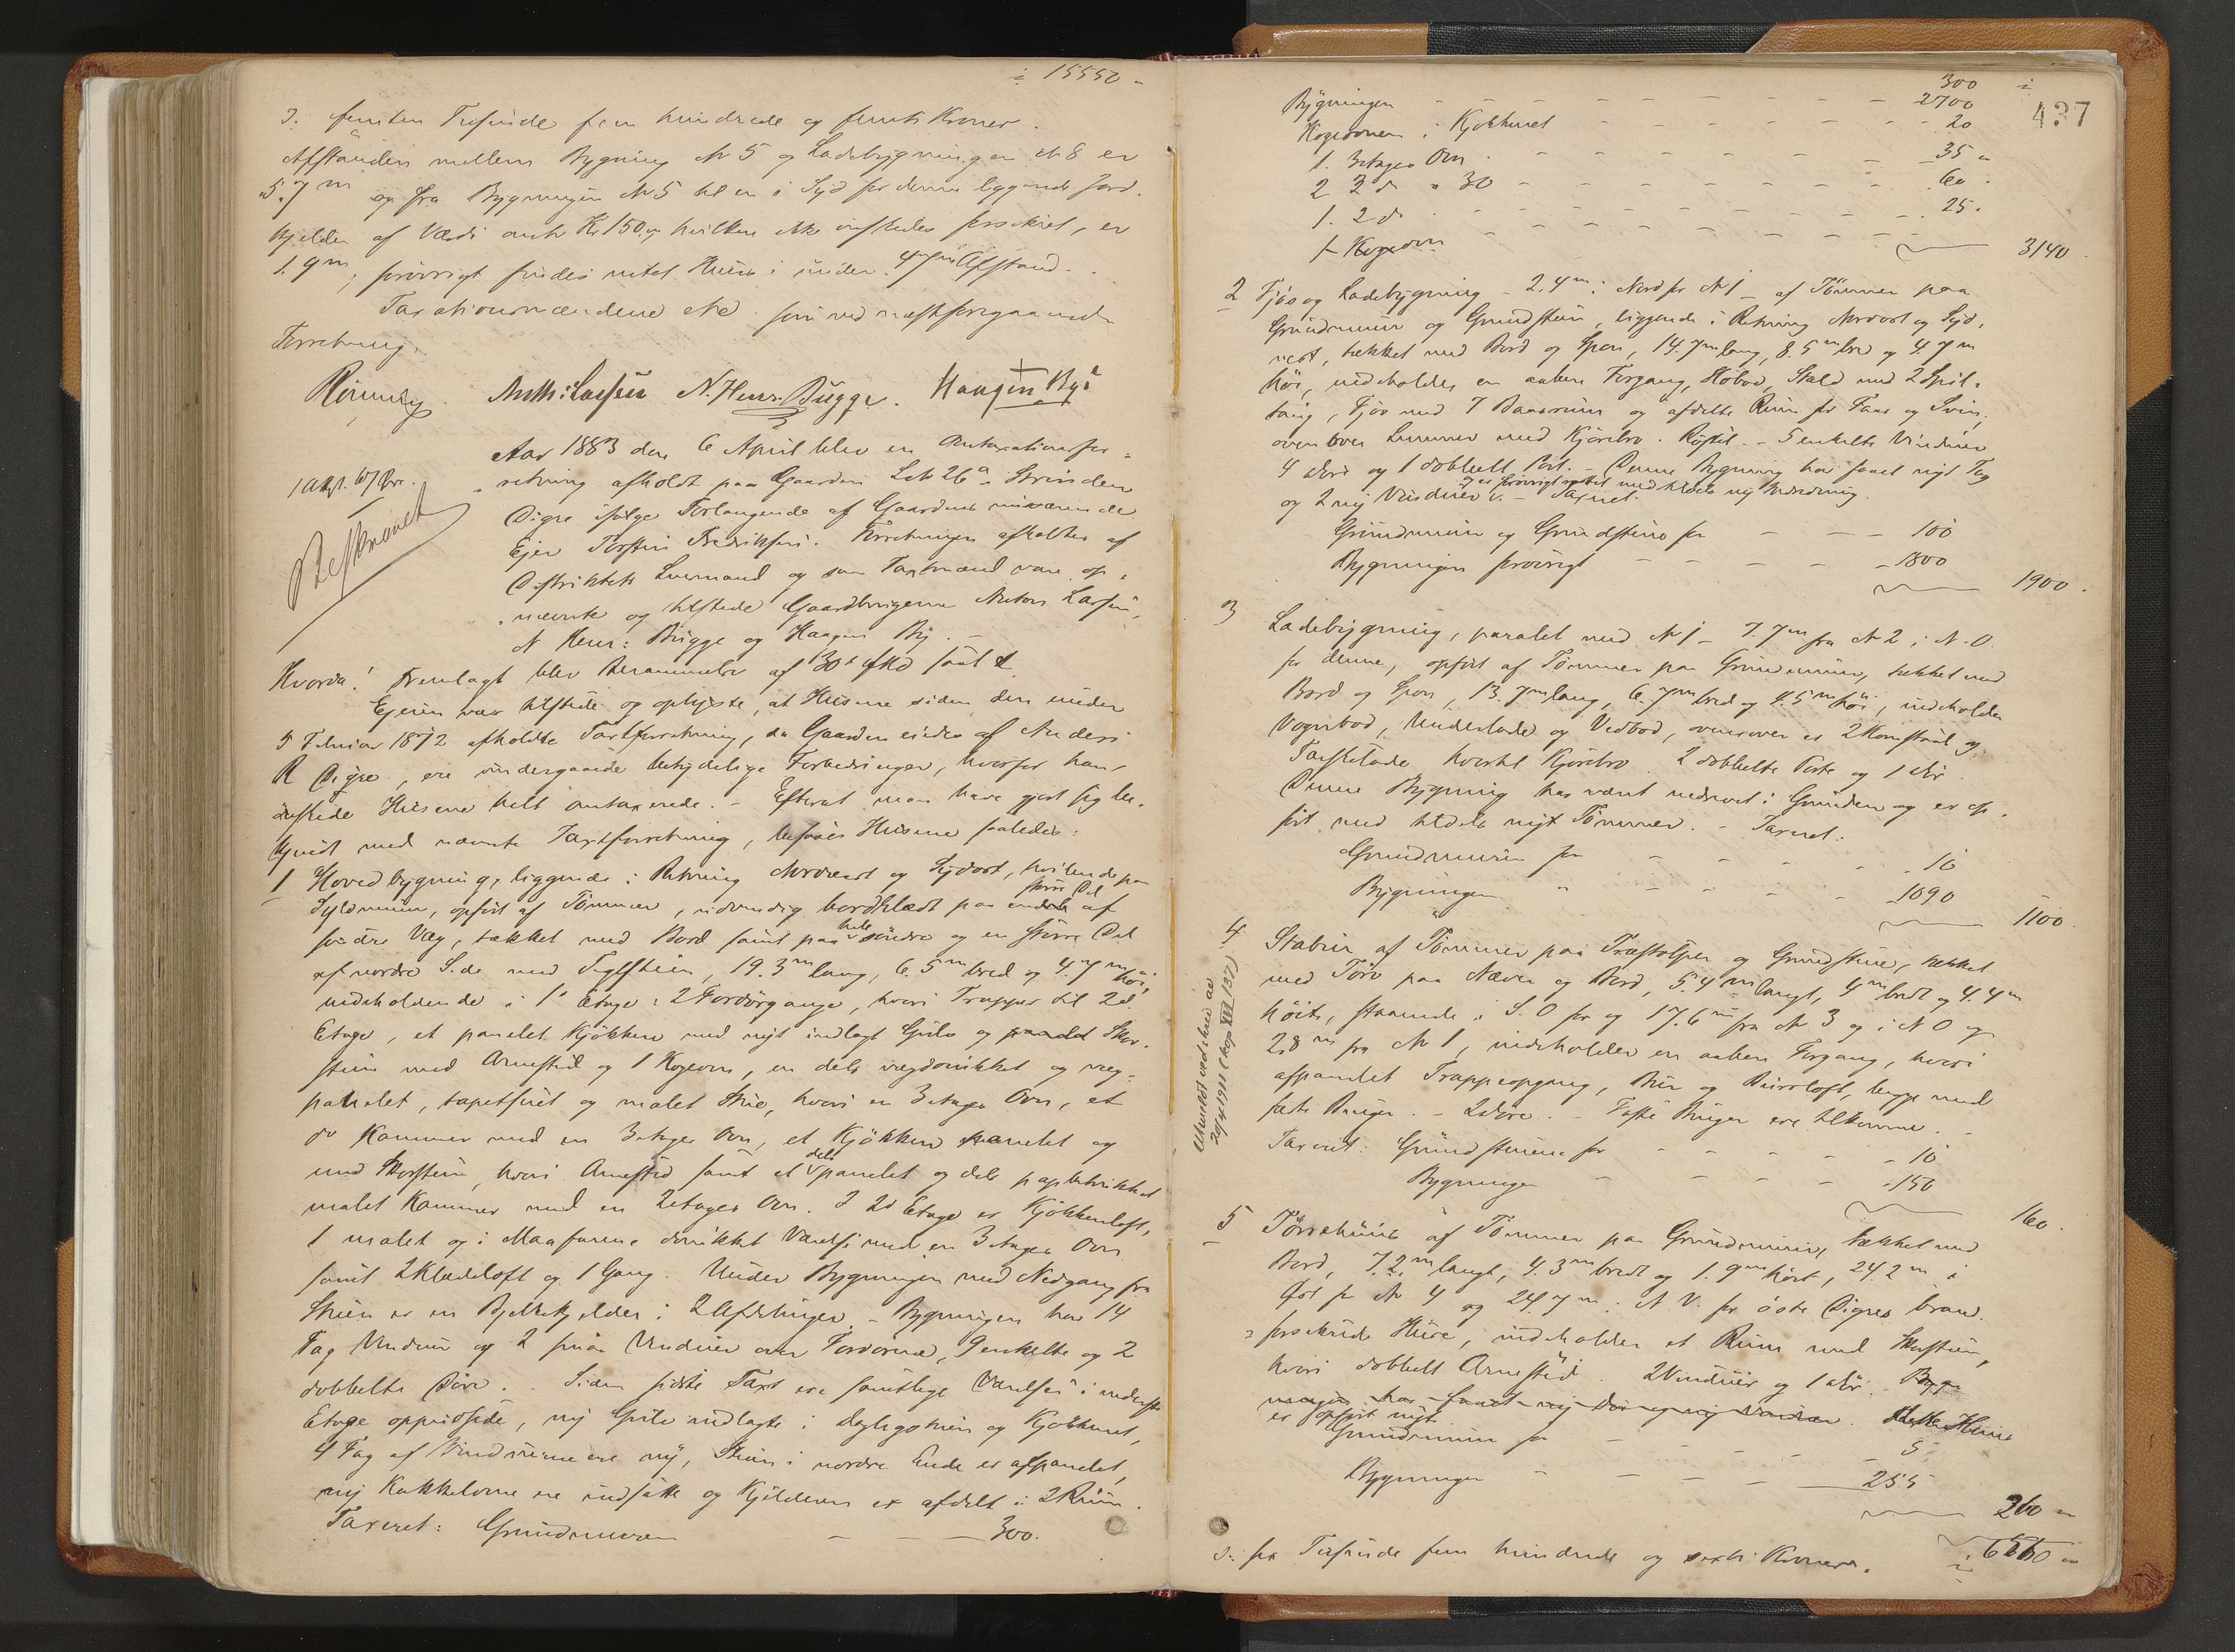 i 15550 -
3: femten Tusinde fem hundrede og femti Kroner.
Afstanden mellem Bygning № 5 og Ladebygningen № 8 er
5.7 m og fra Bygningen № 5 til en i Syd for denne liggende Jord-
kjelder af Værdi omtr Kr 150, hvilken ikke önskedes forsikret, er
1.9 m, forövrigt findes intet Huus i under Afstand.
Taxationsmændene som ved næstforegaaende
Forretning.
Rönning. Anth: Larsen N. Henr. Bugge. Haagen By
Aar 1883 den 6 April blev en Omtaxationsfor-
retning afholdt paa Gaarden Lnr 26a i Strinden
Digre ifölge Forlangende af Gaardens nuværende
Ejer Torsten Fredriksen. Forretningen afholdtes af
Distriktets Lensmand og som Taxtmænd vare op-
nævnte og tilstede Gaardbrugerne Anton Larsen,
N Henr: Bugge og Haagen By. -
Beskrevet
Hvorda! Fremlagt blev Berammelse af 30te f Md samt
Ejeren var tilstede og oplyste, at Husene siden den under
5 Februar 1872 afholdte Taxtforretning, da Gaarden eiedes af Anders
R Digre, ere undergaaede betydelige Forbedringer, hvorfor han
önskede Husene helt omtaxerede. - Efterat man havde gjort sig be-
kjendt med nævnte Taxtforretning, befandtes Husene saaledes:
1 Hovedbygning, liggende i Retning Nordvest og Sydost, hvilende paa
Syldmuur, opfört af Tömmer, udvendig bordklædt paa större Del af
söndre Væg, tækket med Bord samt paa hele söndre og en större Del
af nordre Side med Teglsteen, 19.3 m lang, 6.5 m bred og 4.7 m höi,
indeholdende i 1e Etage: 2 Fordörgange, hvori Trapper til 2d
Etage, et panelet Kjökken med nyt indlagt Gulv og Skor-
steen med Arnested og 1 Kogeovn, en dels og væg-
panelet, tapetseret og malet Stue, hvori en 3 etages Ovn, et
do Kammer med en 3 etages Ovn, et Kjökken panelet og
med Skorsteen, hvori Arnested samt et dels panelet og dels
malet Kammer med en 2 etages Ovn. I 2d Etage er Kjökkenloft,
1 malet og i Værelse med en 3 etages Ovn
samt 2 Klædeloft og 1 Gang. Under Bygningen med Nedgang fra
Stuen er en Bjelkekjelder i 2 Afdelinger. - Bygningen har 14
Fag Vinduer og 2 smaa Vinduer over Fordörene, 9 enkelte og 2
dobbelte Döre. - Siden sidste Taxt ere samtlige Værelser i nederste
Etage oppudsede, ny Gulv indlagte i Dagligstuen og Kjökkenet,
4 Fag af Vinduerne ere ny, Stuen i nordre Ende er afpanelet,
ny Kakkelovne ere indsatte og Kjelderen er afdelt i 2 Rum.
Taxeret: Grundmuren - - 300.
300 i
437
Bygningen - - - 2700
Kogeovnen i Kjökkenet - - - 20
1. 3 etages Ovn - - - 35 -
2 3 do a 30 - - - 60 -
1. 2 do - - - 25.
1 Kogeovn - - -
3140.
2 Fjös og Ladebygning - 2.4 m i Nord for № 1 - af Tömmer paa
Grundmuur og Grundsteen, liggende i Retning Nordost og Syd-
vest, tækket med Bord og Spon, 14.7 m lang, 8.5 m bred og 4.7 m
höi, indeholder en aaben Forgang, Höbod, Stald med 2 Spil-
toug, Fjös med 7 Baaserum og afdelte Rum for Faar og Sviin,
ovenover Lemmer med Kjörebro. - 5 enkelte Vinduer
4 döre og 1 dobbelt Port. - Denne Bygning har faaet nyt Tag
og 2 ny Vinduer og er forövrigt med tildels ny Indredning. - Taxeret:
Grundmuur og Grundstene for - - - 100
Bygningen forövrigt - - - 1800
1900.
3 Ladebygning, paralel med № 1 - 7.7 m fra № 2 i N.O.
for denne, opfört af Tömmer paa Grundmuur, tækket med
Bord og Spon, 13.7 m lang, 6.7 m bred og 4.5 m höi, indeholder
Vognbod, Underlade og Vedbod, ovenover er 2 Kornstaal og
Tærskelade hvortil Kjörebro. 2 dobbelte Porte og 1 dör.
Denne Bygning har været nedrevet i Grunden og er op-
fört med tildels nyt Tömmer. - Taxeret:
Grundmuren for - - - 10
Bygningen - - - 1090
1100.
4 Stabur af Tömmer paa Træstolper og Grundstene, tækket
med Törv paa Næver og Bord, 5.4 m langt, 4 m bredt og 4.4 m
höit, staaende i S.O for og 17.6 m fra № 3 og i N O og
2.8 m fra № 1, indeholder en aaben Forgang, hvori
afpanelet Trappeopgang, Bur og Buursloft, begge med
faste Binger. - 2 döre. - Faste Binger ere tilkomne. -
Taxeret: Grundstenene for - - - 10
Bygningen - - - 150
160.
5 Törrehuus af Tömmer paa Grundmuur, tækket med
Bord, 7.2 m langt, 4.3 m bredt og 1.9 m höit, 24.2 m i
Öst for № 4 og 24.7 m i N V. for östre Digres brand-
forsikrede Huse, indeholder et Rum med Skorsteen,
hvori dobbelt Arnested. 2 Vinduer og 1 dör. - Byg-
ningen har faaet ny Dör og ny Vinduer. Dette Huus
er opfört nyt.
Grundmuren for - - - 5
Bygningen - - - 255
260 -
i 6560 -
3: sex Tusinde fem hundrede og sexti Kroner.